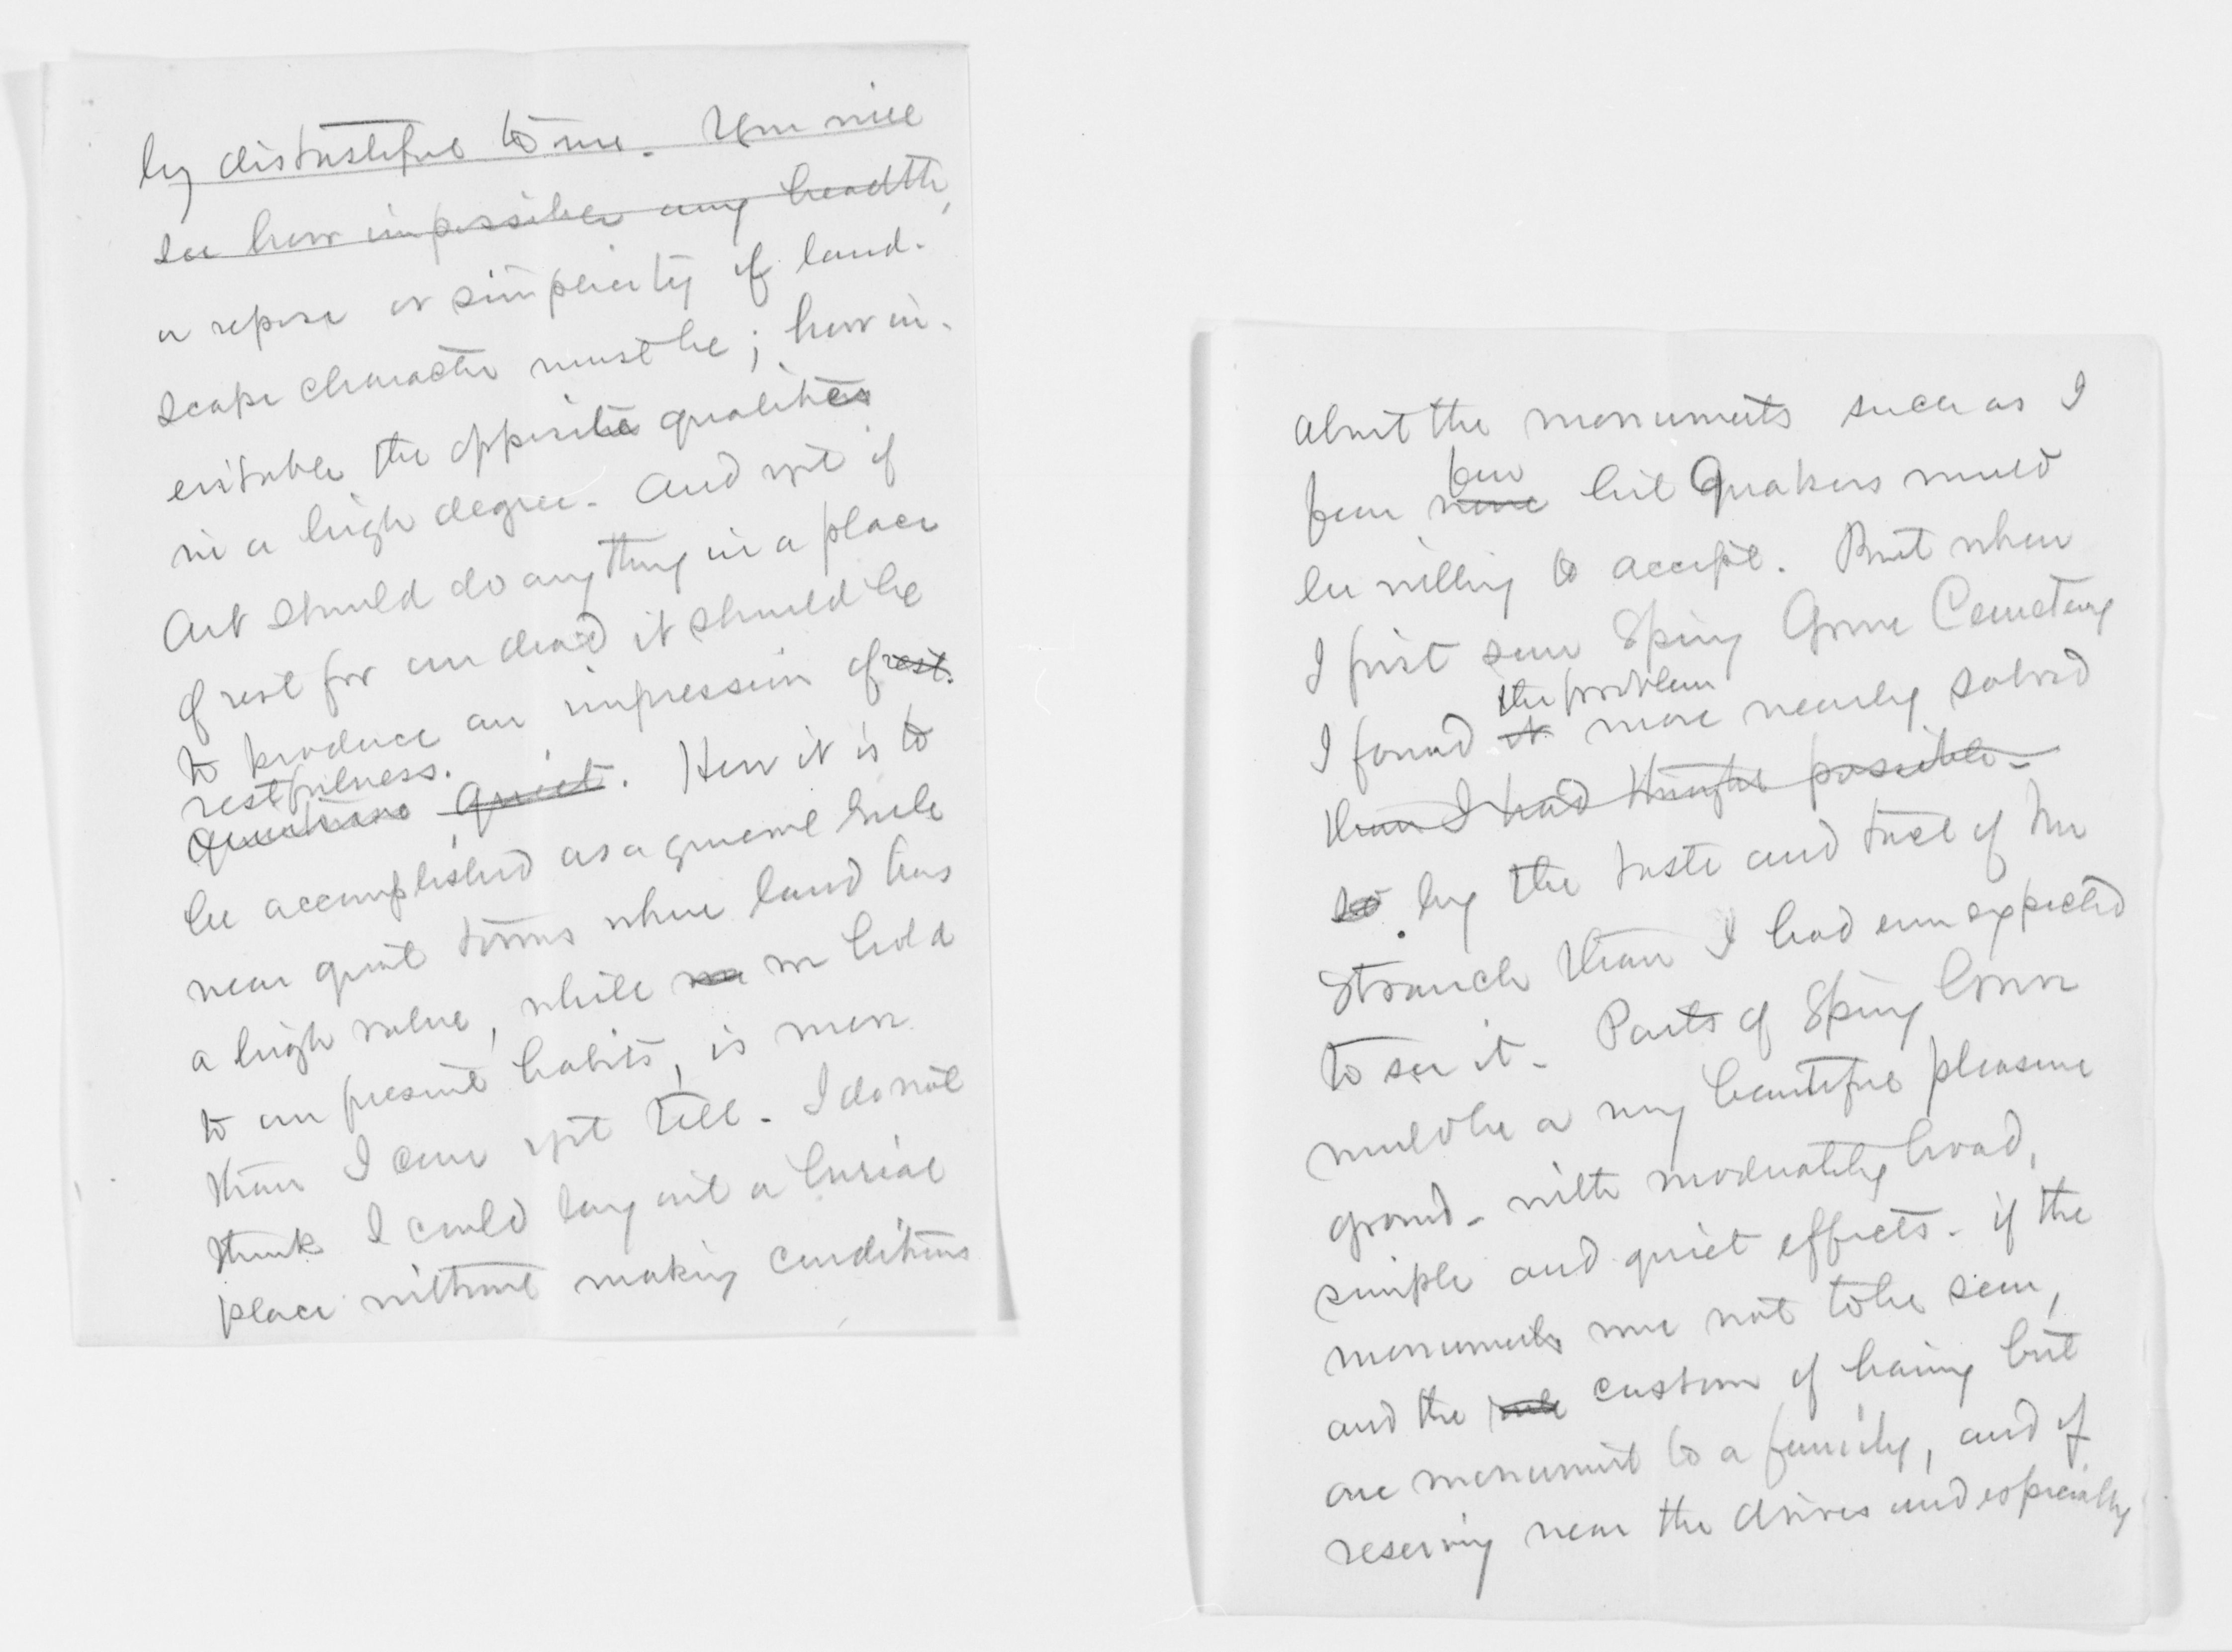 ly distasteful to me. You will
see how impossible any breadth,
or repose or simplicity of land-
scape character must be; how in-
evitable the opposite qualities
in a high degree. And yet if
Art should do anything in a place
of rest for our dead it should be
to produce an impression of rest.
restfulness.
quiet. How it is to
be accomplished as a general rule
near great towns where land has
a high value, while we hold
to our present habits, is more
than I can yet tell. I do not
think I could lay out a burial
place without making conditions
about the monuments such as I
few
fear none but Quakers would
be willing to accept. But when
I first saw Spring Grove Cemetery
the problem
I found it more nearly solved
than I had thought possible -
so by the taste and tact of Mr
Strauch than I had ever expected
to see it. Parts of Spring Grove
would be a very beautiful pleasure
ground - with moderately broad,
simple and quiet effects - if the
monuments were not to be seen,
and the rule custom of having but
one monument to a family, and of
reserving near the drives and especially